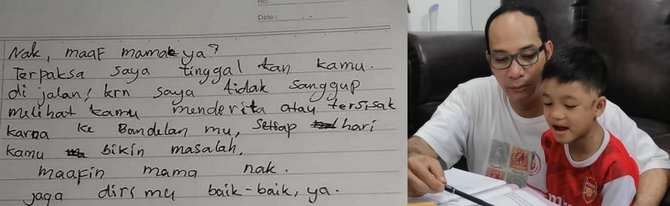 No:
Date:
Nak, maaf mamak ya?
Terpaksa saya tinggal kan kamu.
di jalan, krn saya tidak sanggup
melihat kamu menderita atau tersisak
karna ke Bandelan mu, setiap hari
kamu bikin masalah.
maafin mama nak.
jaga diri mu baik-baik, ya.